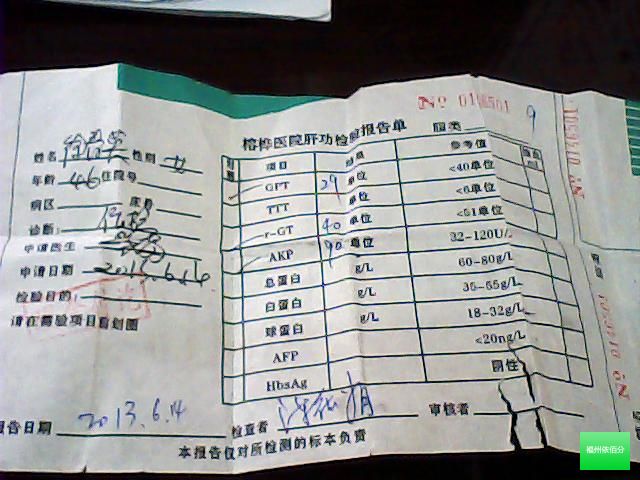 No 01
榕桦医院肝功检验报告单
姓名 性别 女
年龄 46 住院号
病区 床号
诊断:
申请医生
申请日期
检验目的:
请在需验项目前划圈
项目 结果 参考值
GPT 29 单位 <40单位
TTT 单位 <6单位
r-GT 40 单位 <51单位
AKP 90 单位 32-120U/L
总蛋白 g/L 60-80g/L
白蛋白 g/L 35-55g/L
球蛋白 g/L 18-32g/L
AFP <20ng/L
HbsAg 阴性
报告日期 2013.6.4 检查者 审核者
本报告仅对所检测的标本负责
福州依佰分